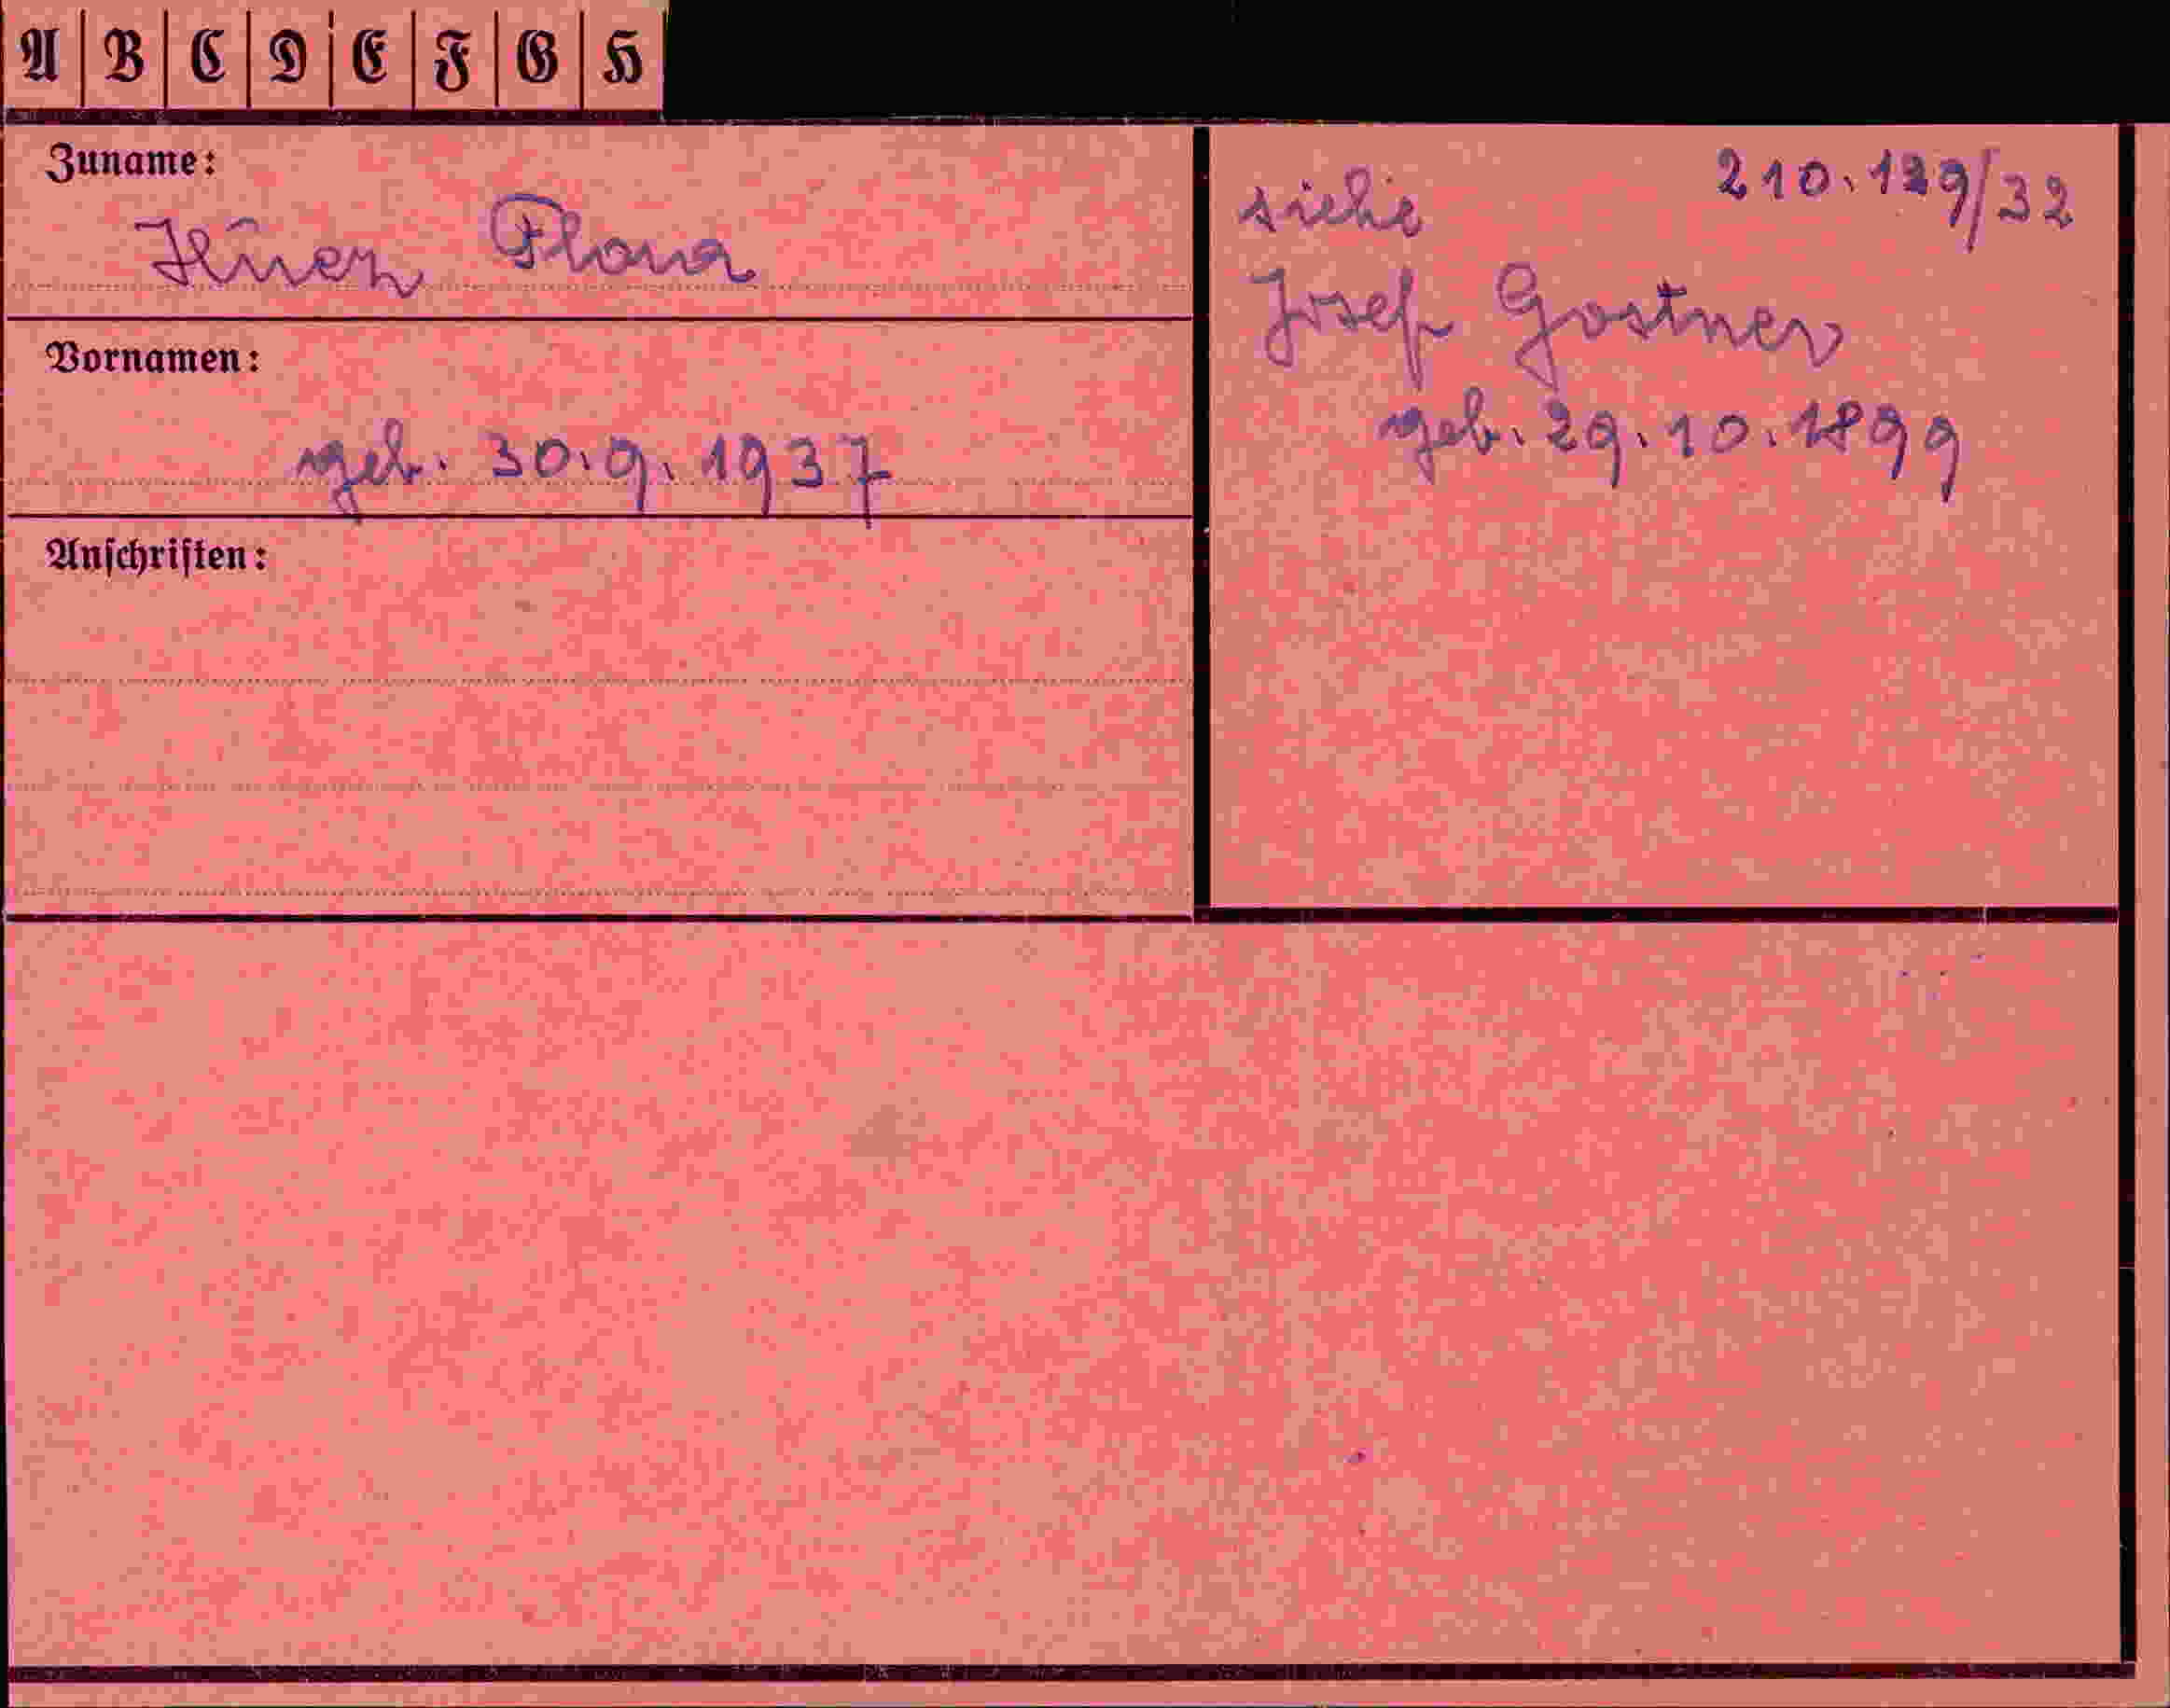 A B C D E F G H
Zuname:
Flora
Vornamen:
geb. 30.9.1937
Anschriften:
210.129/32
siehe
Josef Gostner
geb. 29.10.1899